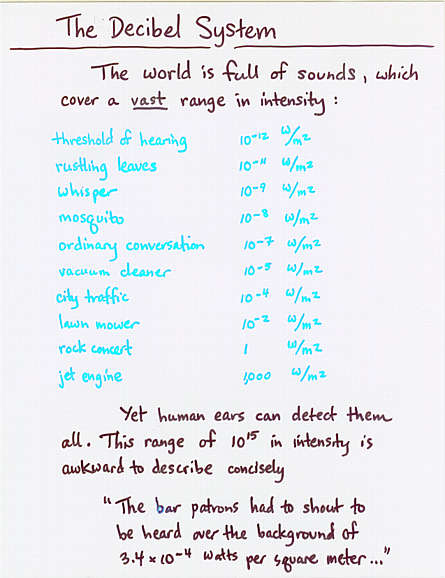 The Decibel System
The world is full of sounds, which
cover a vast range in intensity:
threshold of hearing 10⁻¹² W/m²
rustling leaves 10⁻¹¹ W/m²
whisper 10⁻⁹ W/m²
mosquito 10⁻⁸ W/m²
ordinary conversation 10⁻⁷ W/m²
vacuum cleaner 10⁻⁵ W/m²
city traffic 10⁻⁴ W/m²
lawn mower 10⁻² W/m²
rock concert 1 W/m²
jet engine 1,000 W/m²
Yet human ears can detect them
all. This range of 10¹⁵ in intensity is
awkward to describe concisely
"The bar patrons had to shout to
be heard over the background of
3.4 × 10⁻⁴ watts per square meter..."